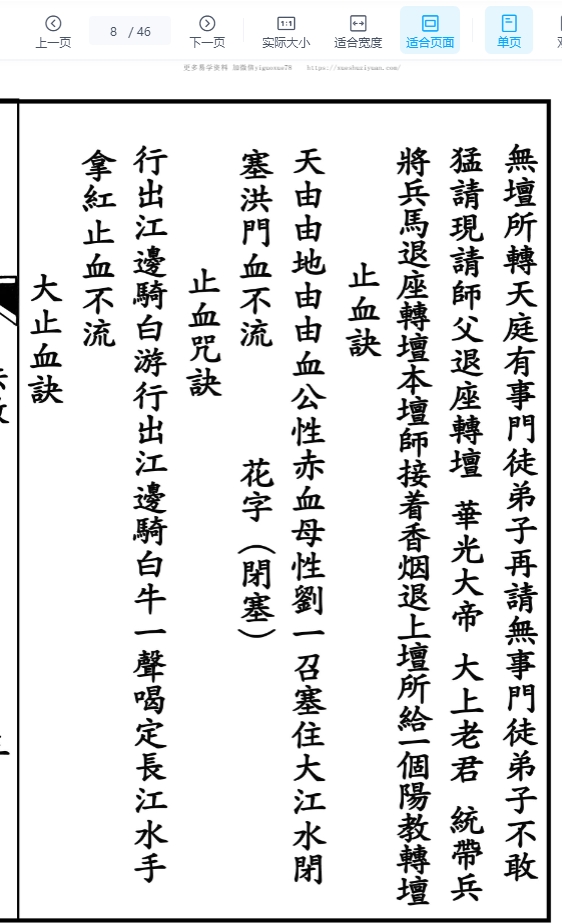 上一页
8 / 46
下一页
1:1
实际大小
适合宽度
适合页面
单页
更多易学资料 加微信yiguoxue78 https://xueshuziyuan.com/
無壇所轉天庭有事門徒弟子再請無事門徒弟子不敢
猛請現請師父退座轉壇 華光大帝 大上老君 統帶兵
將兵馬退座轉壇本壇師接着香烟退上壇所給一個陽教轉壇
止血訣
天由由地由由血公性赤血母性劉一召塞住大江水閉
塞洪門血不流 花字（閉塞）
止血咒訣
行出江邊騎白游行出江邊騎白牛一聲喝定長江水手
拿紅止血不流
大止血訣